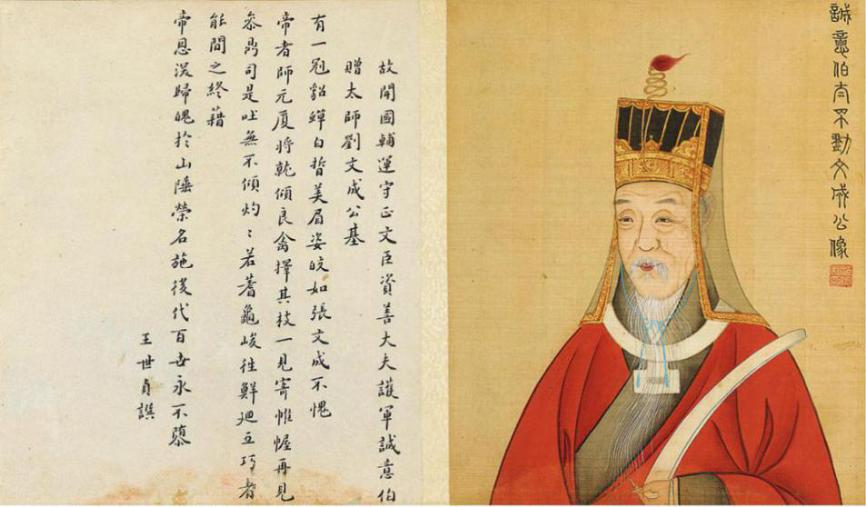 誠意伯太師劉文成公像
故開國輔運守正文臣資善大夫護軍誠意伯
贈太師劉文成公基
有一冠貂蟬白皙美眉姿皎如張文成不愧
帝者師元厦将乾傾良禽擇其枝一見寄帷幄再見
叅鼎司是吐無不傾灼〻若蓍龜峻徃鮮廻互巧者
能間之終藉
帝恩深歸魄於山陲榮名施後代百世永不隳
王世貞譔